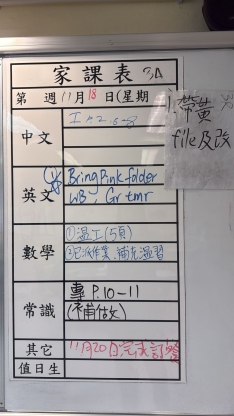 家課表 3A
第 週 11月18日(星期
中文 工 A 2. 6-8
英文 ① Bring Pink folder
WB , Gr tmr
數學 ①溫工(5頁)
②已派作業、補充溫習
常識 專 P.10-11
(補做文)
其它 11月20日完成訂
值日生
1. 帶黃
file 及改